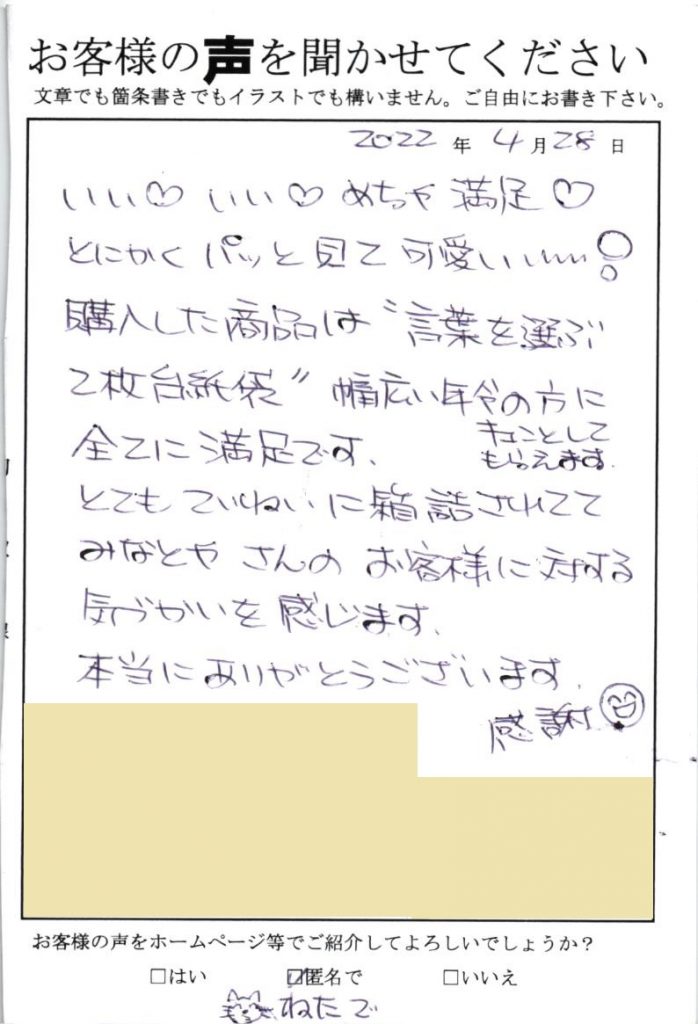 お客様の声を聞かせてください
文章でも箇条書きでもイラストでも構いません。ご自由にお書き下さい。
2022年4月28日
いい♡ いい♡ めちゃ満足♡
とにかくパッと見て可愛いいーー!
購入した商品は〝言葉を選ぶ
て枚台紙袋〞幅広い年令の方に
キュンとして
もらえます
全てに満足です、
とてもていねいに箱詰されてて
みなとやさんのお客様に対する
気づかいを感じます、
本当にありがとうございます、
感謝
お客様の声をホームページ等でご紹介してよろしいでしょうか?
□はい ☑匿名で □いいえ
ねたで